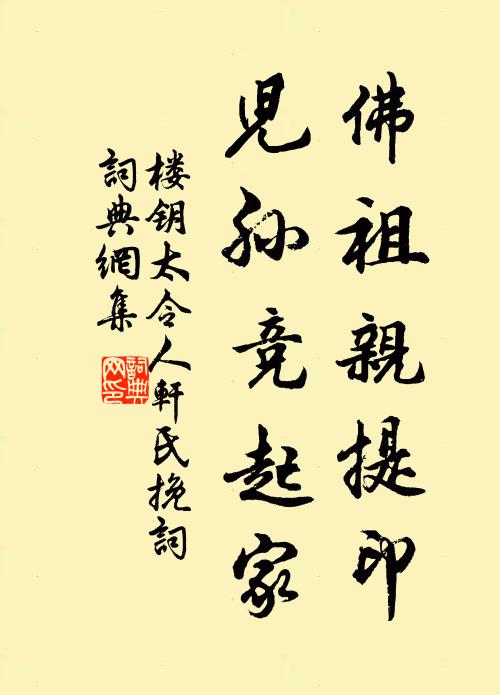 佛祖親提印
兒孙竞起家
楼钥太令人軒氏挽詞
詞典網集
詞典网印